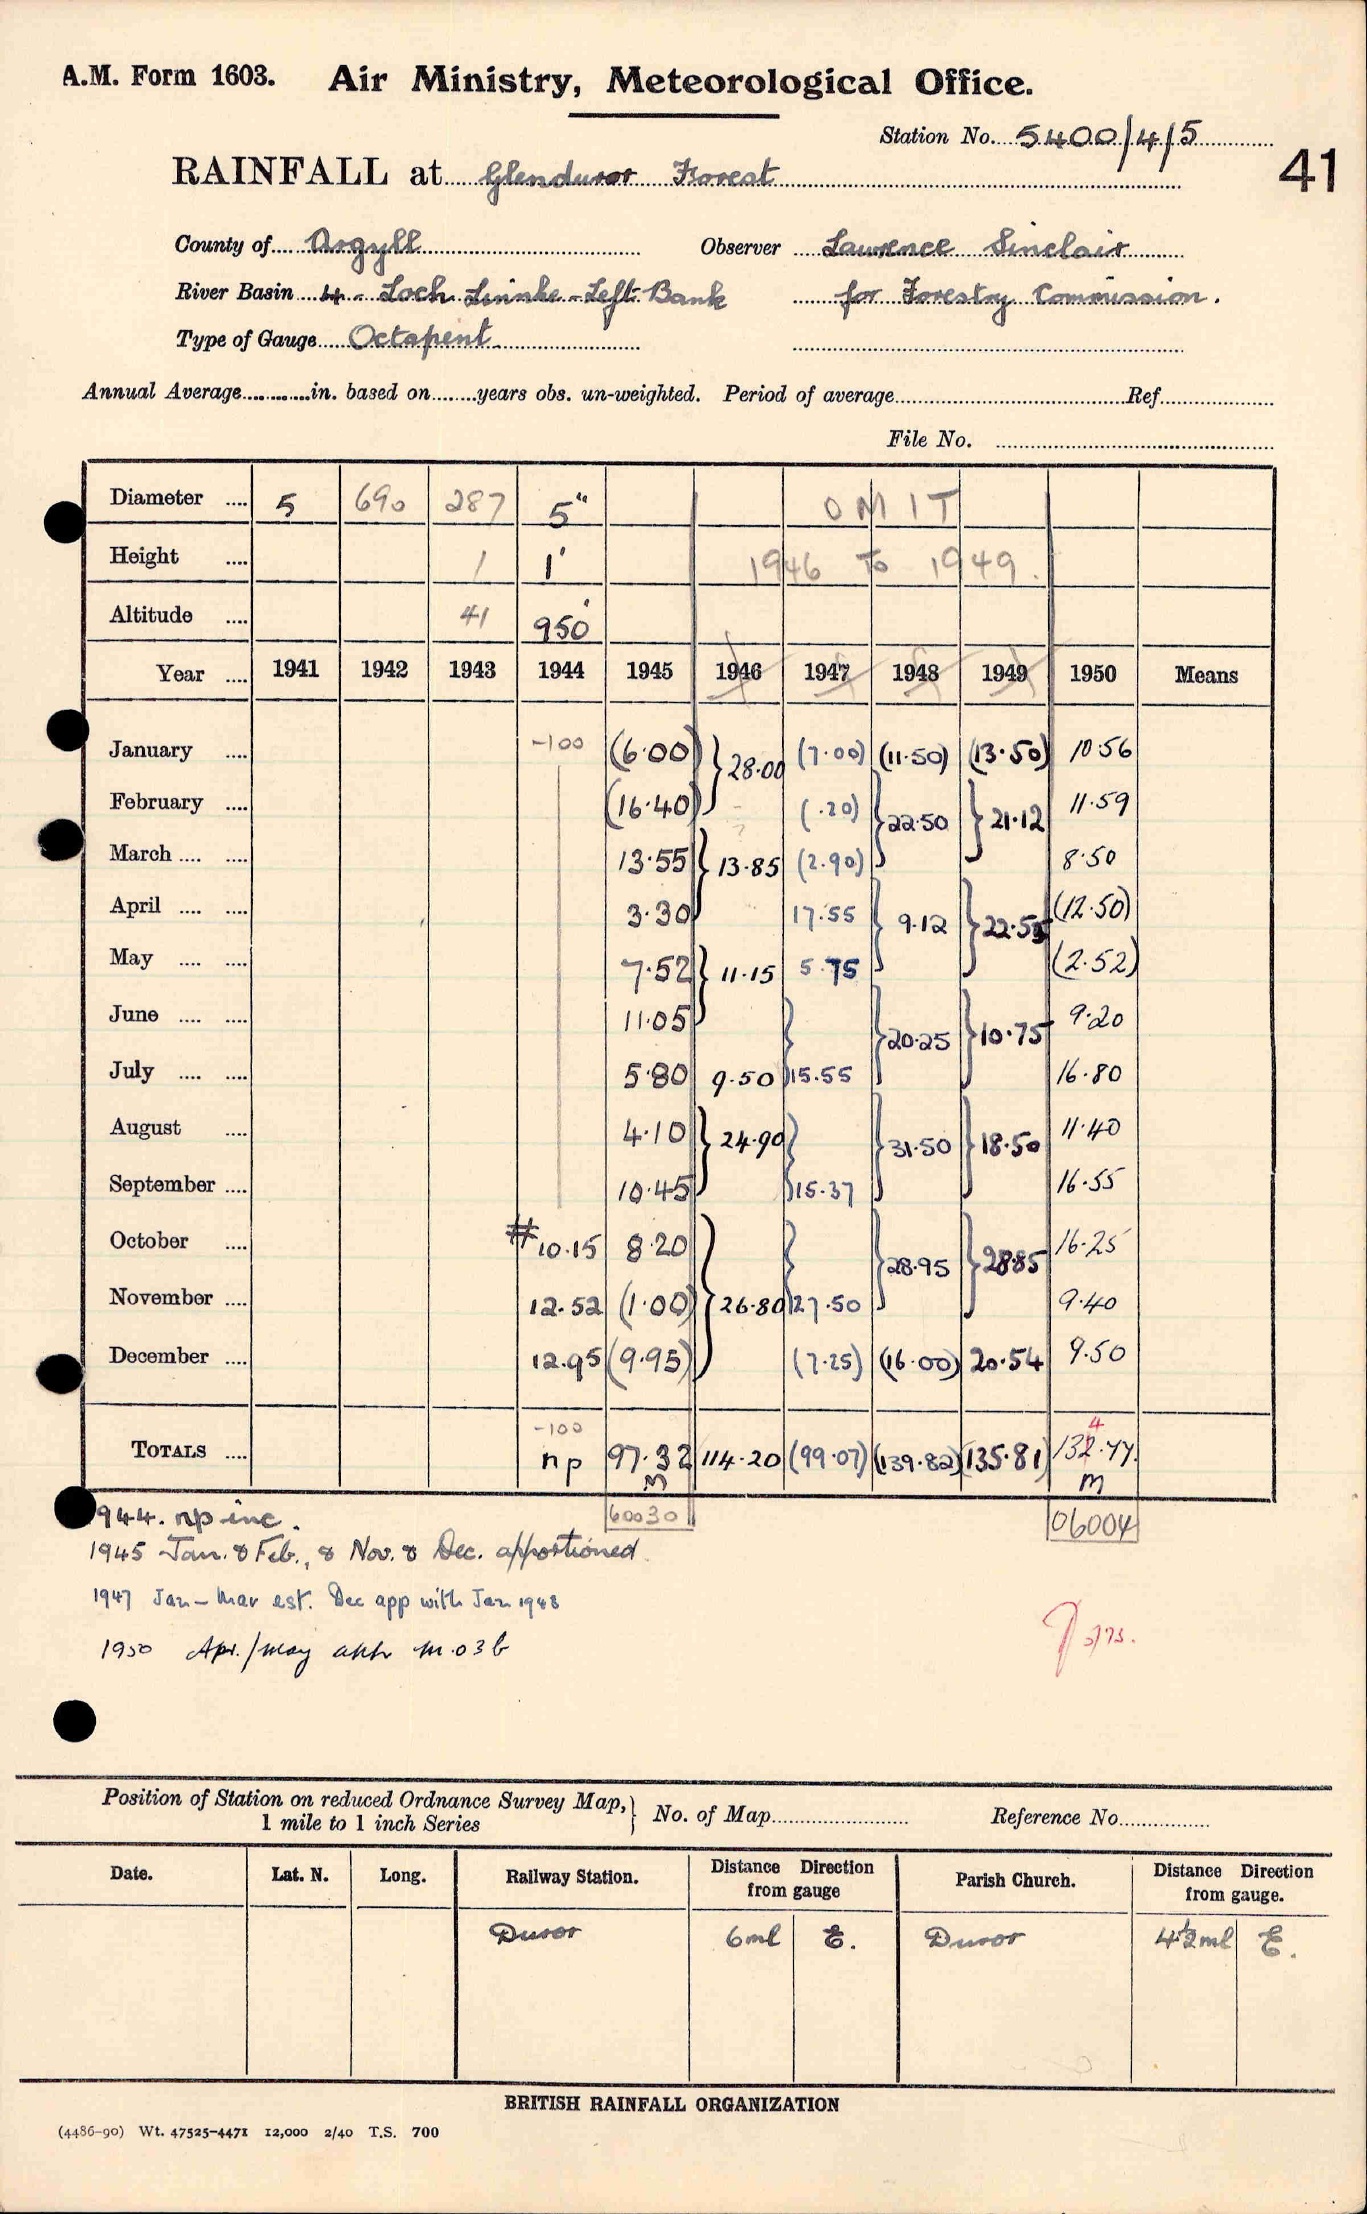 A.M. Form 1603. Air Ministry, Meteorological Office.
Station No. 5400/4/5
41
RAINFALL at Glenduror Forest
County of Argyll Observer Lawrence Sinclair
River Basin 4 - Loch Linnhe - Left Bank for Forestry Commission.
Type of Gauge Octapent
Annual Average............in. based on........years obs. un-weighted. Period of average Ref.
File No.
Diameter .... 5 690 287 5" OMIT
Height .... 1 1' 1946 To 1949.
Altitude .... 41 950'
Year .... 1941 1942 1943 1944 1945 1946 1947 1948 1949 1950 Means
January .... -100 (6.00) } 28.00 (7.00) (11.50) (13.50) 10.56
February .... (16.40) (.20) } 22.50 } 21.12 11.59
March .... .... 13.55 } 13.85 (2.90) 8.50
April .... .... 3.30 17.55 } 9.12 } 22.55 (12.50)
May .... .... 7.52 } 11.15 5.75 (2.52)
June .... .... 11.05 } 20.25 } 10.75 9.20
July .... .... 5.80 9.50 } 15.55 16.80
August .... 4.10 } 24.90 } 31.50 } 18.50 11.40
September .... 10.45 } 15.37 16.55
October .... # 10.15 8.20 } 28.95 } 28.85 16.25
November .... 12.52 (1.00) } 26.80 } 27.50 9.40
December .... 12.95 (9.95) (7.25) (16.00) 20.54 9.50
TOTALS .... -100 np 97.32 m 114.20 (99.07) (139.82) (135.81) 132.77. 4 m
60030 06004
1944. np inc.
1945 Jan. & Feb., & Nov. & Dec. apportioned
1947 Jan - Mar est. Dec app with Jan 1948
1950 Apr./May app m.03b
5/73.
Position of Station on reduced Ordnance Survey Map, } No. of Map Reference No.
1 mile to 1 inch Series
Date. Lat. N. Long. Railway Station. Distance Direction from gauge Parish Church. Distance Direction from gauge.
Duror 6ml E. Duror 4½ml E.
BRITISH RAINFALL ORGANIZATION
(4486-90) Wt. 47525-4471 12,000 2/40 T.S. 700